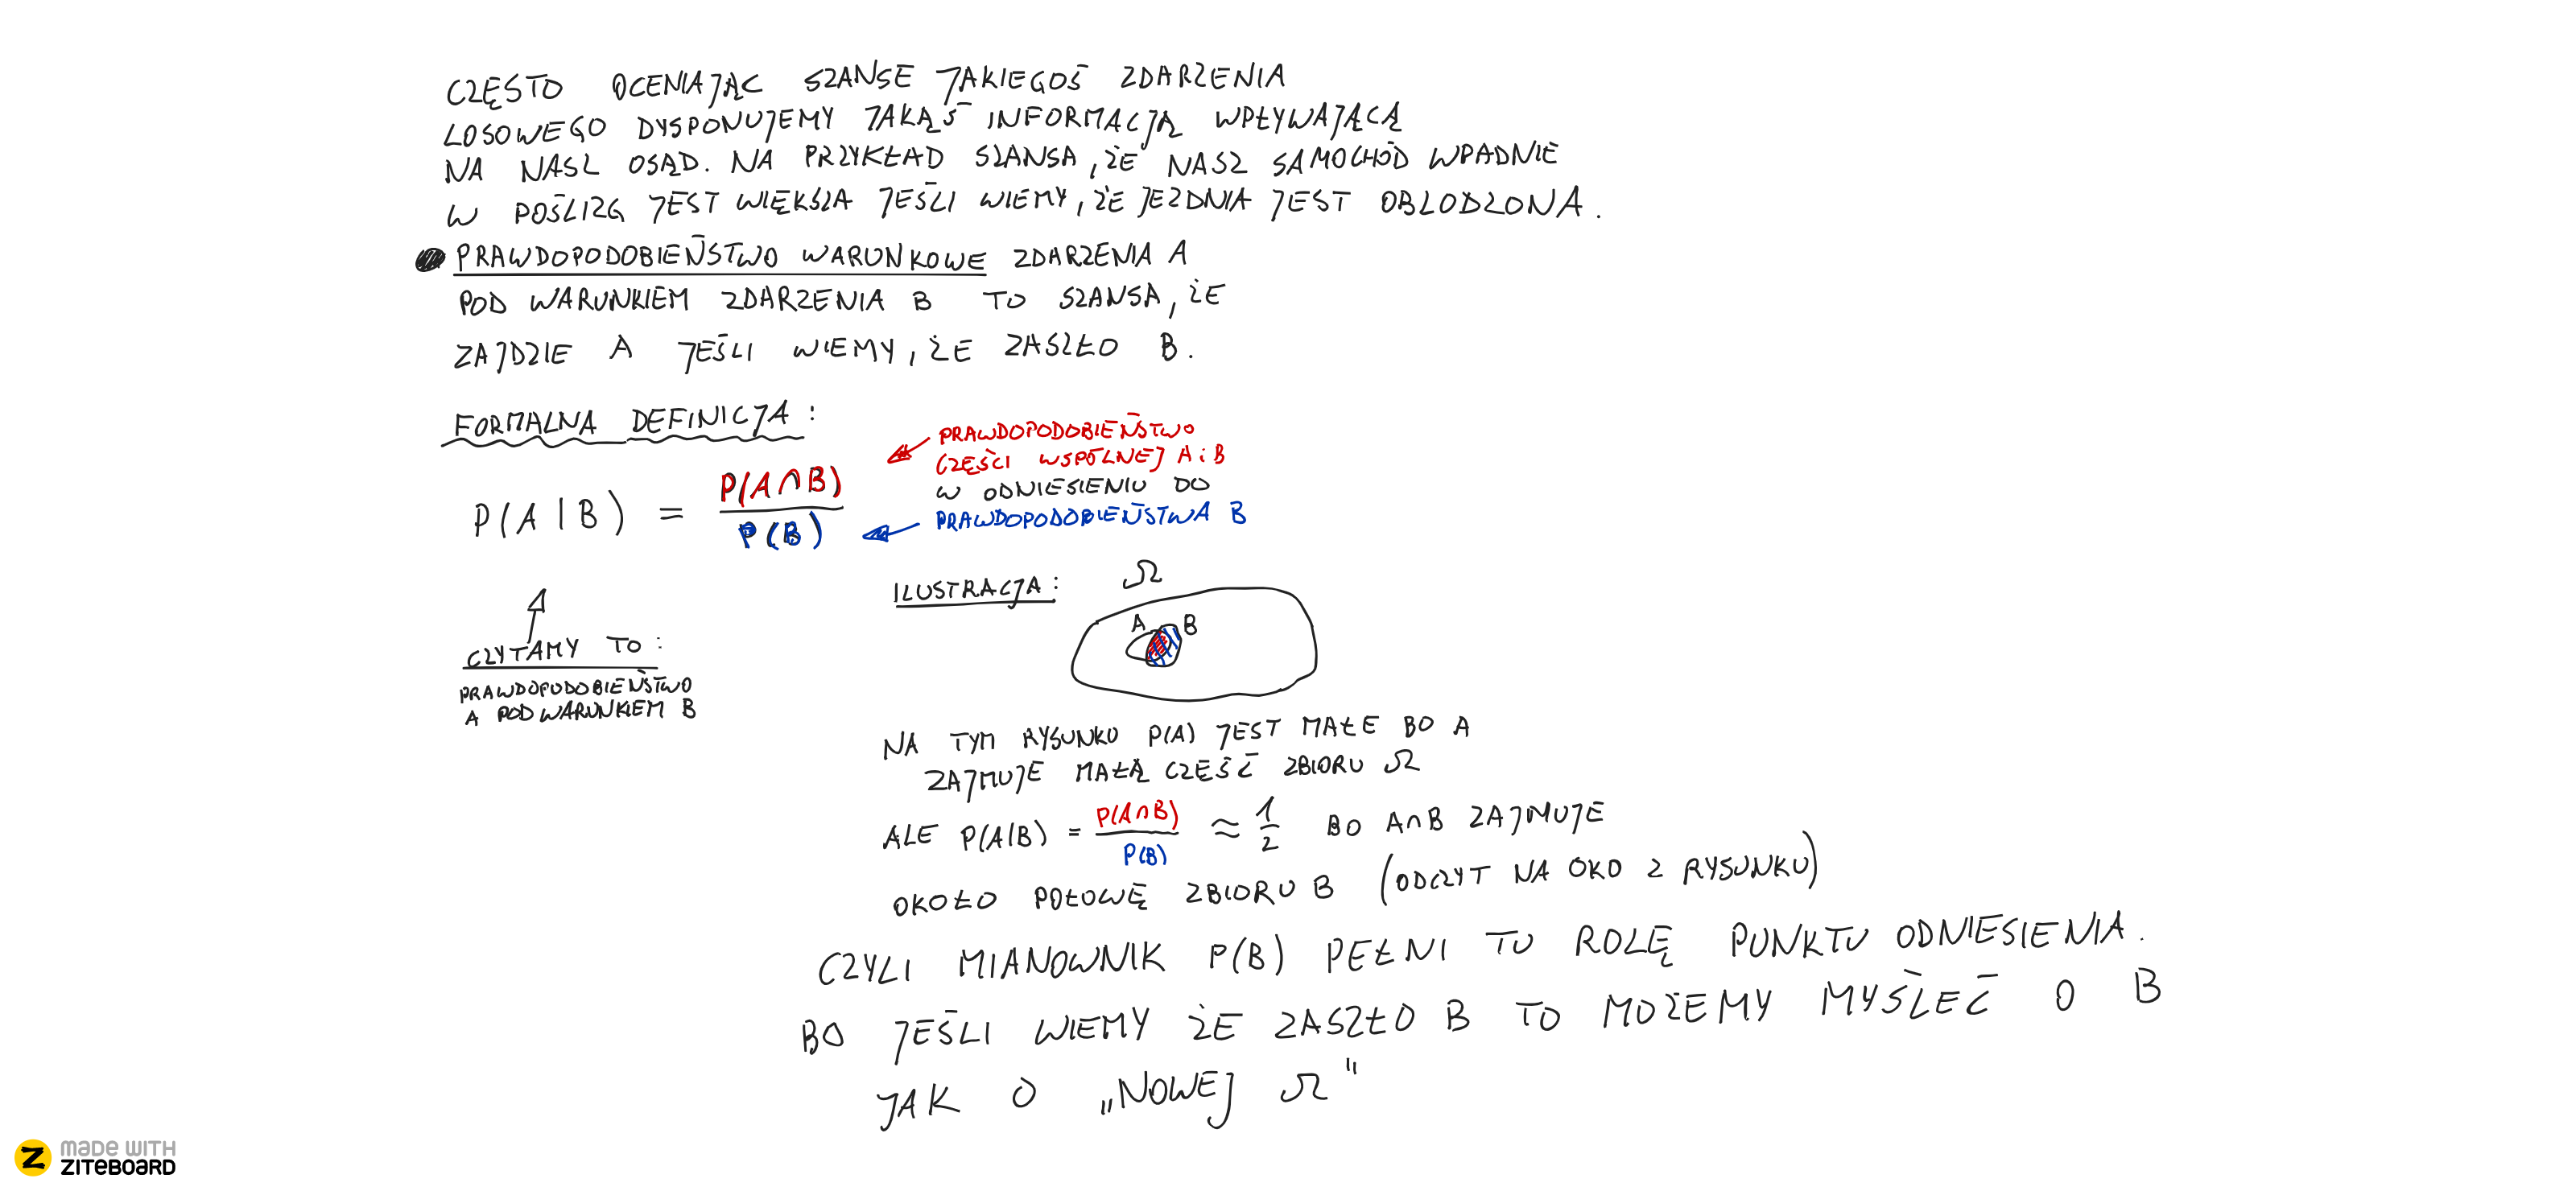 CZĘSTO OCENIAJĄC SZANSE JAKIEGOŚ ZDARZENIA
LOSOWEGO DYSPONUJEMY JAKĄŚ INFORMACJĄ WPŁYWAJĄCĄ
NA NASZ OSĄD. NA PRZYKŁAD SZANSA, ŻE NASZ SAMOCHÓD WPADNIE
W POŚLIZG JEST WIĘKSZA JEŚLI WIEMY, ŻE JEZDNIA JEST OBLODZONA.
PRAWDOPODOBIEŃSTWO WARUNKOWE ZDARZENIA A
POD WARUNKIEM ZDARZENIA B TO SZANSA, ŻE
ZAJDZIE A JEŚLI WIEMY, ŻE ZASZŁO B.
FORMALNA DEFINICJA:
P(A|B) = P(A∩B) / P(B)
PRAWDOPODOBIEŃSTWO
CZĘŚCI WSPÓLNEJ A i B
W ODNIESIENIU DO
PRAWDOPODOBIEŃSTWA B
CZYTAMY TO:
PRAWDOPODOBIEŃSTWO
A POD WARUNKIEM B
ILUSTRACJA:
Ω
A B
NA TYM RYSUNKU P(A) JEST MAŁE BO A
ZAJMUJE MAŁĄ CZĘŚĆ ZBIORU Ω
ALE P(A|B) = P(A∩B) / P(B) ≈ 1/2 BO A∩B ZAJMUJE
OKOŁO POŁOWĘ ZBIORU B (ODCZYT NA OKO Z RYSUNKU)
CZYLI MIANOWNIK P(B) PEŁNI TU ROLĘ PUNKTU ODNIESIENIA.
BO JEŚLI WIEMY ŻE ZASZŁO B TO MOŻEMY MYŚLEĆ O B
JAK O „NOWEJ Ω"
MADE WITH
ZITEBOARD